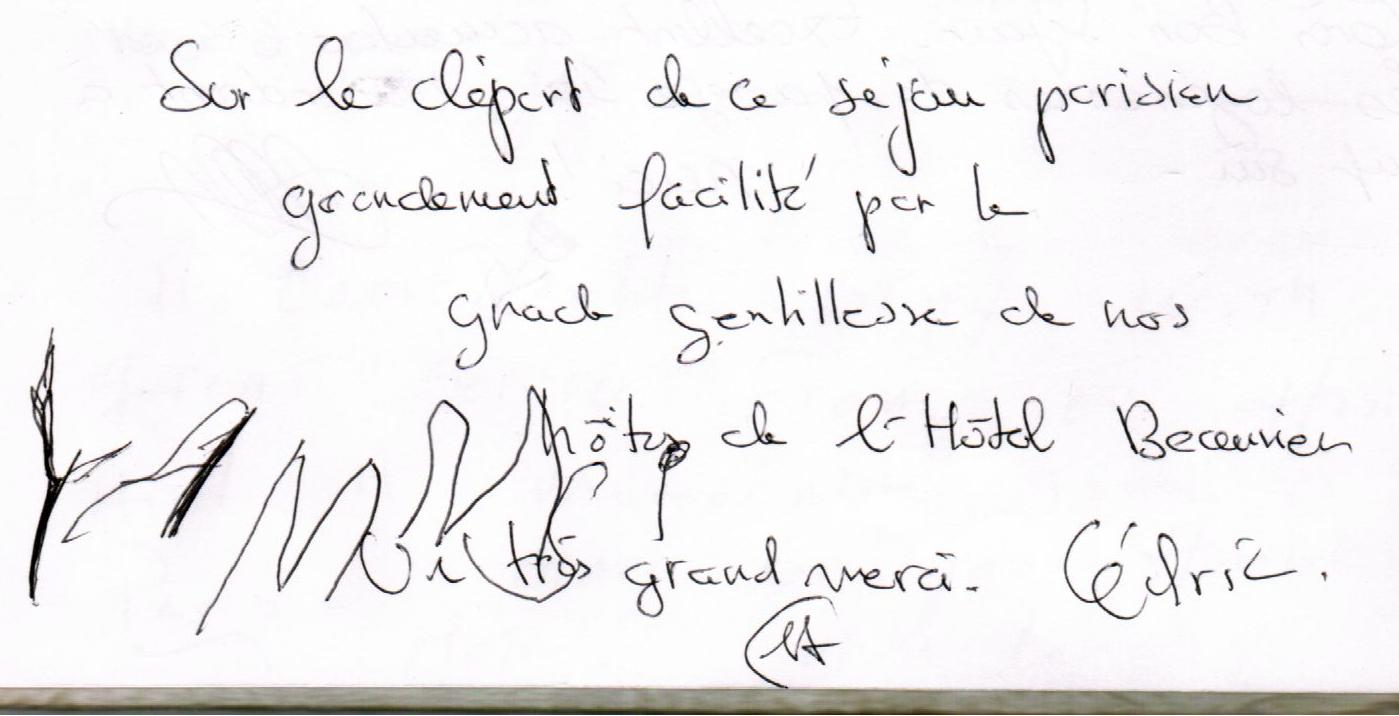 Sur le départ de ce séjou parisien
grandement facilité par la
grade gentillesse de nos
hôtes de l'Hôtel Beauvien
très grand merci. Cédric.